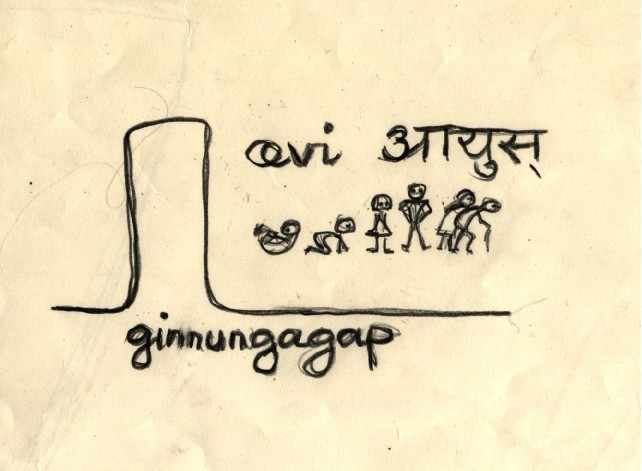 ævi आयुस्
ginnungagap